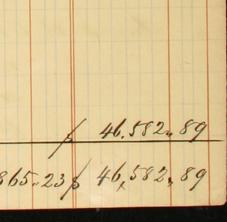 $ 46,582,89
865.23 $ 46,582,89